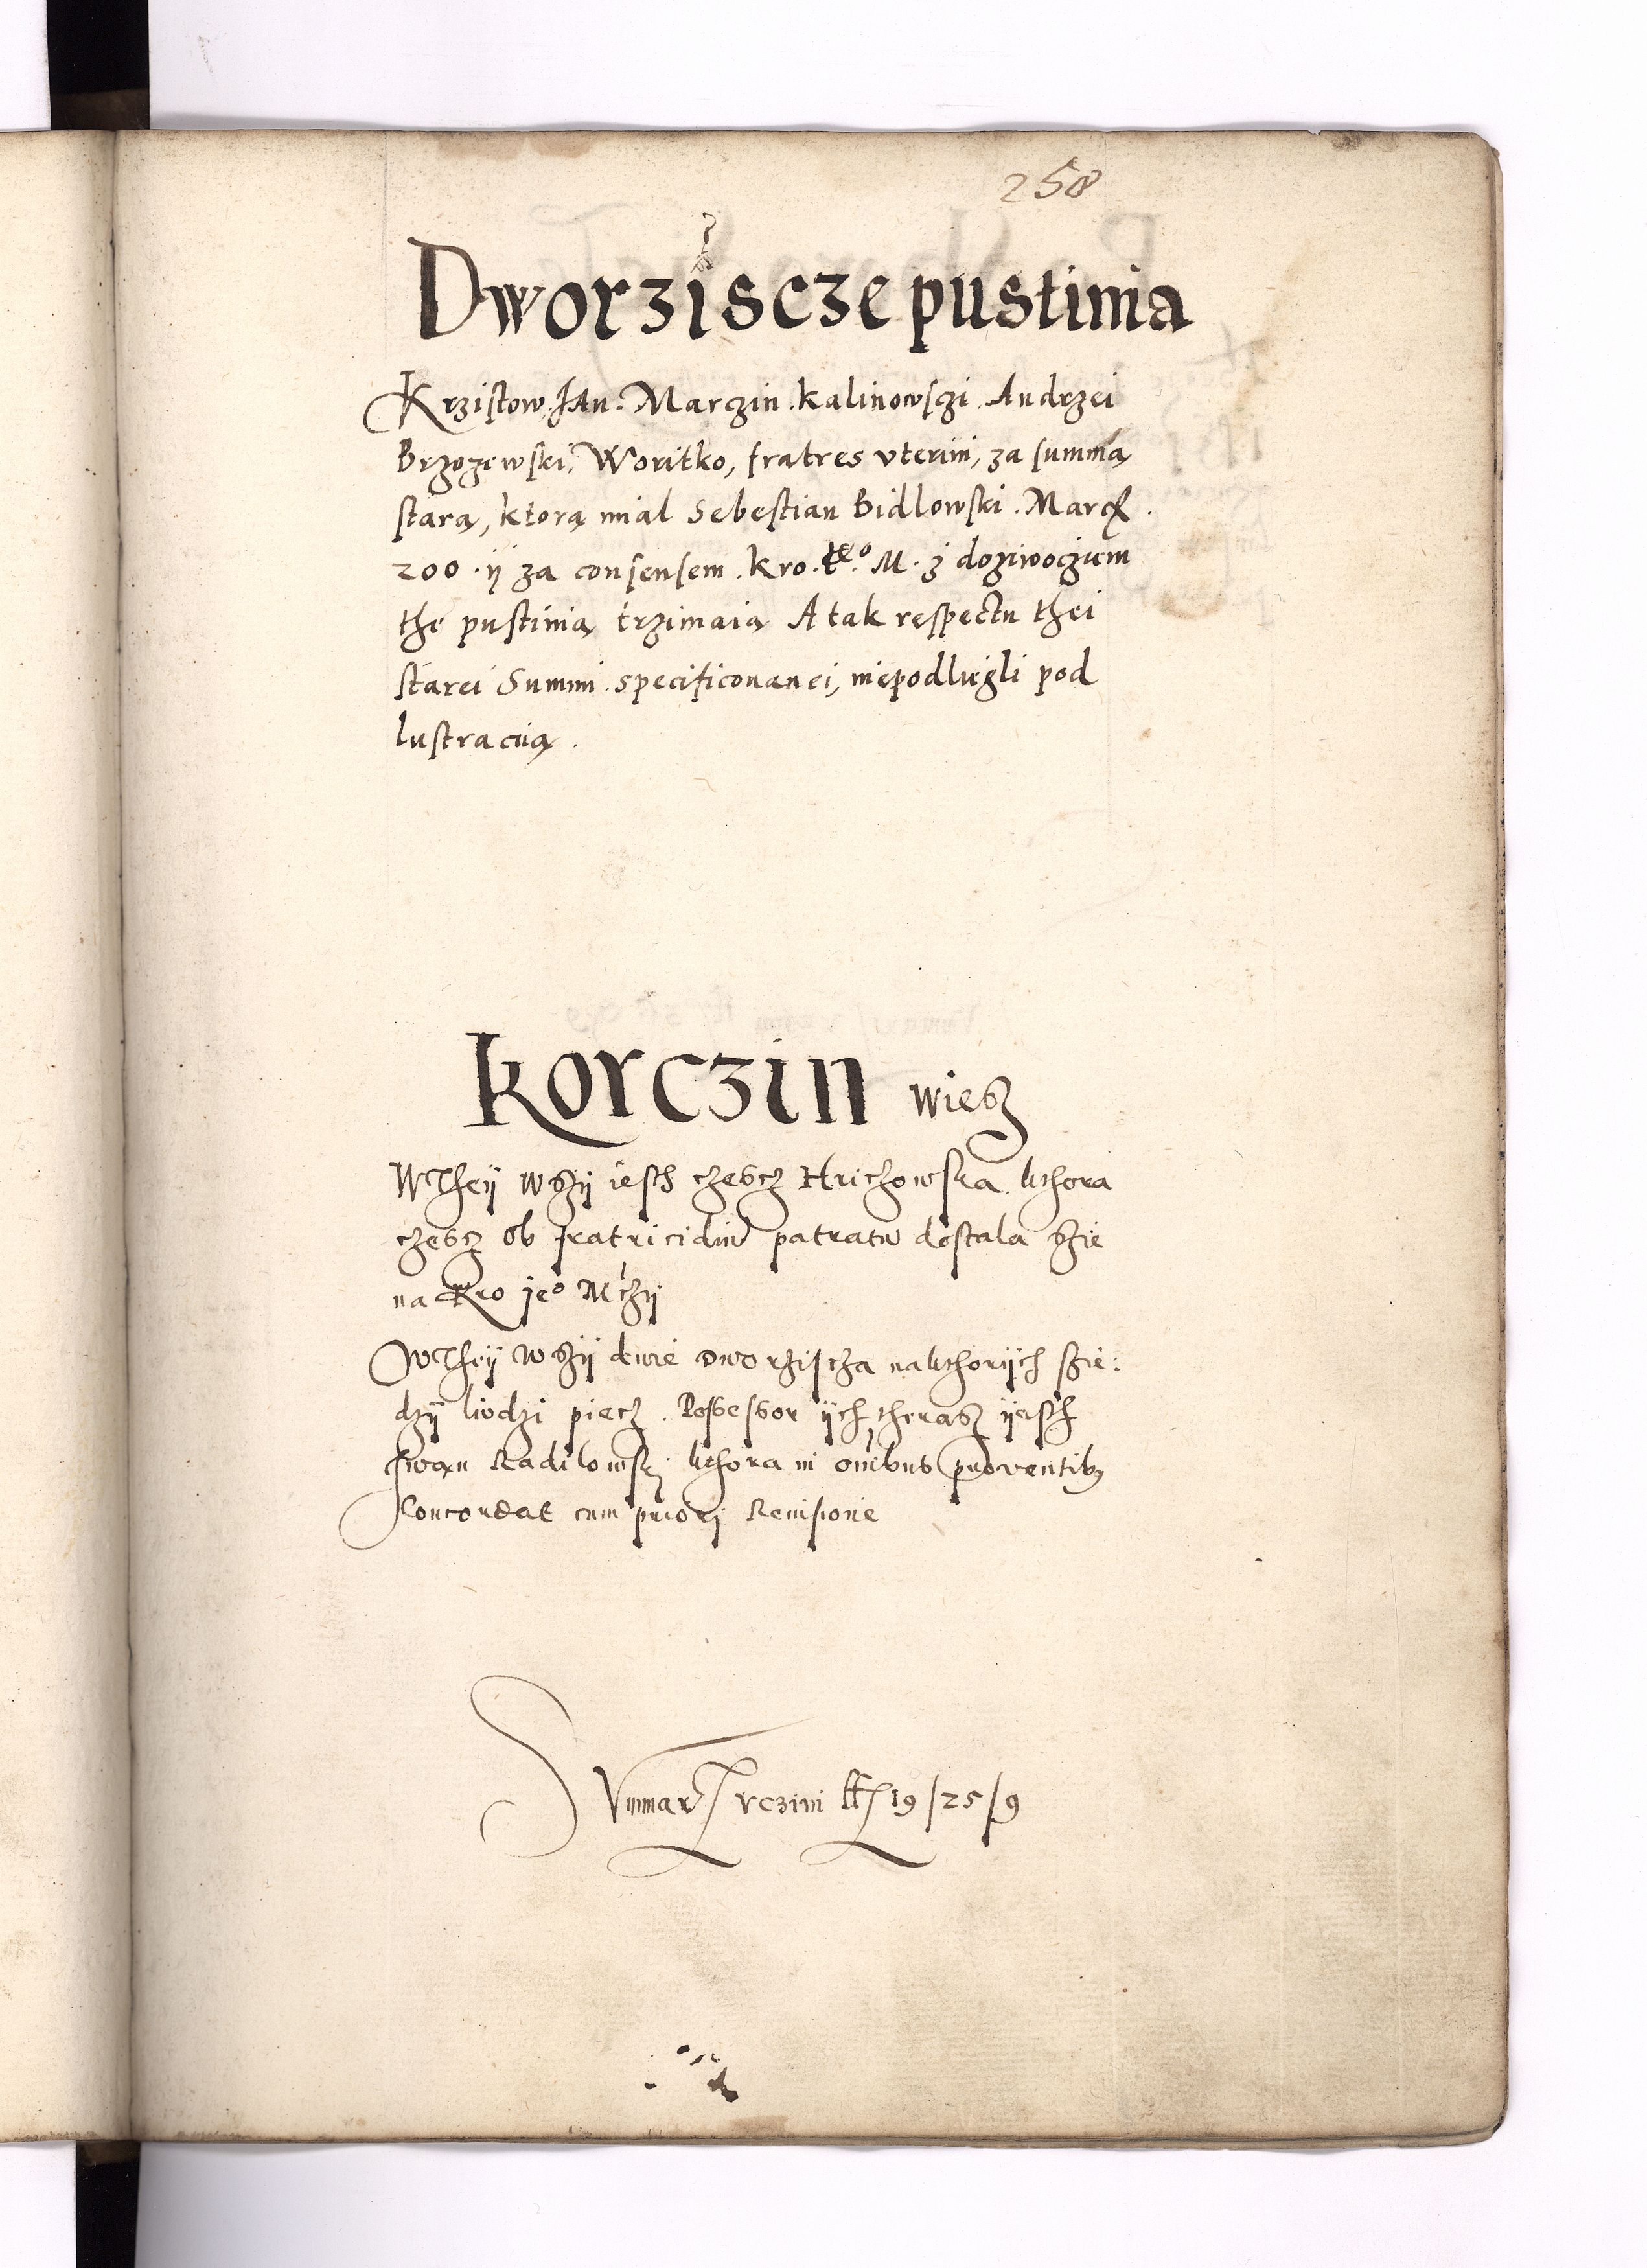 258
Dworziscze pustinia
Krzistow. Jan. Marczin. Kalinowsczi. Andrzei
Brzozewski, Woritko, fratres vterini, za summą
starą, ktorą mial Sebestian Bidlowski. Marc
200. ij za consensem. Kro. M. z doziwociem
thę pustinią trzimaią A tak respectu thei
starei Summi. specificouanei, niepodliegli pod
lustracią.
Korczin wiesz
W They wszij iesth częscz Hrichowska. kthora
częscz ob fratricidiu patratu dostala szie
na Kro jeo Mczy
W They wszij dwie dworzyscza na kthorych szie:
dzy liudzi piecz. Possessor ijch, therasz ijesth
Iwan Radilowski kthora in omibus prouentib9
Concordat cum priorj Reuisione
Summar Vrczini 19/25/9